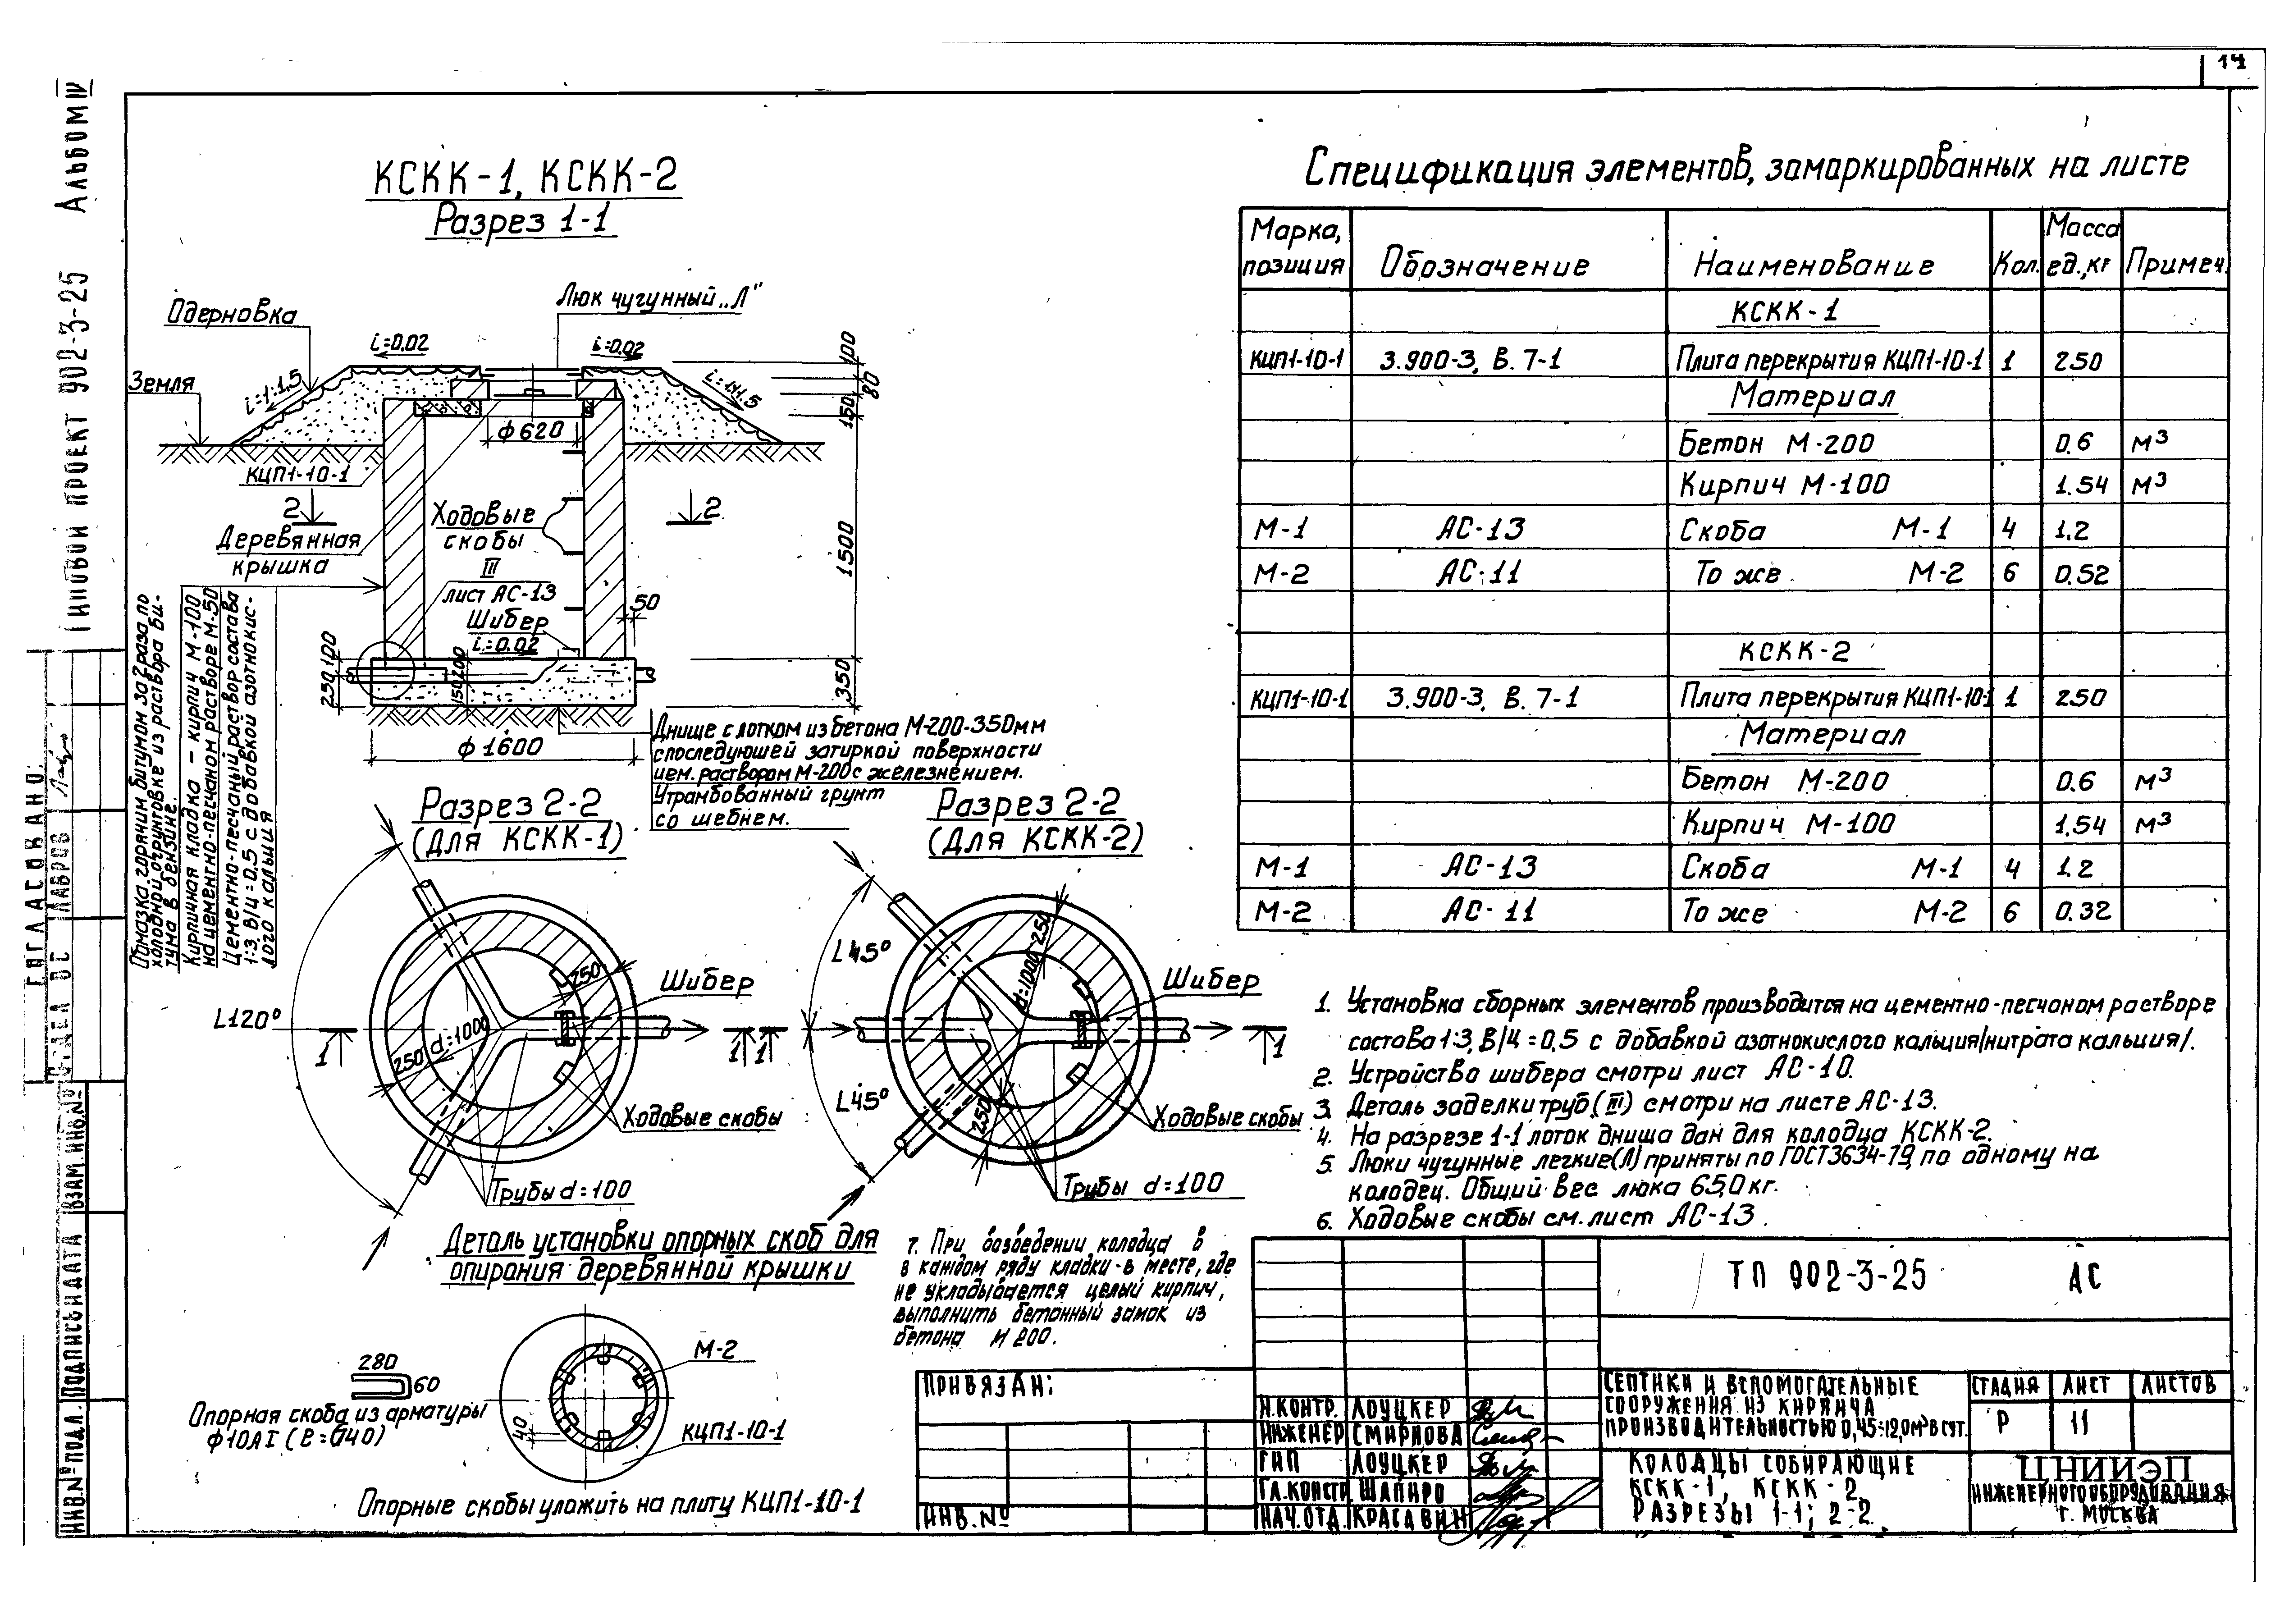 14
Альбом IV
Типовой проект 902-3-25
КСКК-1, КСКК-2
Разрез 1-1
Одерновка
Люк чугунный „Л"
i=0.02
i=0.02
Земля
i=1:1.5
i=1:1.5
100
80
150
ф620
КЦП1-10-1
2
2
Ходовые
скобы
Деревянная
крышка
III
лист АС-13
1500
50
Шибер
i=0.02
100
250
200
150
350
ф1600
Обмазка горячим битумом за 2 раза по
холодной огрунтовке из раствора би-
тума в бензине.
Кирпичная кладка – кирпич М-100
на цементно-песчаном растворе М-50
Цементно-песчаный раствор состава
1:3, В/Ц=0.5 с добавкой азотнокис-
лого кальция
Днище с лотком из бетона М-200-350мм
с последующей затиркой поверхности
цем. раствором М-200 с железнением.
Утрамбованный грунт
со щебнем.
Разрез 2-2
(Для КСКК-1)
Разрез 2-2
(Для КСКК-2)
L120°
250
d=1000
250
Шибер
1
1
Ходовые скобы
Трубы d=100
L45°
L45°
250
d=1000
250
Шибер
1
1
Ходовые скобы
Трубы d=100
Деталь установки опорных скоб для
опирания деревянной крышки
280
60
Опорная скоба из арматуры
ф10АI (ℓ=840)
40
М-2
КЦП1-10-1
Опорные скобы уложить на плиту КЦП1-10-1
Спецификация элементов, замаркированных на листе
Марка, позиция Обозначение Наименование Кол. Масса ед., кг Примеч.
КСКК-1
КЦП1-10-1 3.900-3, В. 7-1 Плита перекрытия КЦП1-10-1 1 250
Материал
Бетон М-200 0.6 м3
Кирпич М-100 1.54 м3
М-1 АС-13 Скоба М-1 4 1.2
М-2 АС-11 То же М-2 6 0.52
КСКК-2
КЦП1-10-1 3.900-3, В. 7-1 Плита перекрытия КЦП1-10-1 1 250
Материал
Бетон М-200 0.6 м3
Кирпич М-100 1.54 м3
М-1 АС-13 Скоба М-1 4 1.2
М-2 АС-11 То же М-2 6 0.32
1. Установка сборных элементов производится на цементно-песчаном растворе
состава 1:3, В/Ц=0,5 с добавкой азотнокислого кальция/нитрата кальция/.
2. Устройство шибера смотри лист АС-10.
3. Деталь заделки труб (III) смотри на листе АС-13.
4. На разрезе 1-1 лоток днища дан для колодца КСКК-2.
5. Люки чугунные легкие(Л) приняты по ГОСТ 3634-79, по одному на
колодец. Общий вес люка 65,0 кг.
6. Ходовые скобы см. лист АС-13.
7. При возведении колодца в
в каждом ряду кладки-в месте, где
не укладывается целый кирпич,
выполнить бетонный замок из
бетона М 200.
ТП 902-3-25 АС
Септики и вспомогательные
сооружения из кирпича
производительностью 0,45÷12,0м³ в сут.
Стадия Лист Листов
Р 11
Колодцы собирающие
КСКК-1, КСКК-2
Разрезы 1-1; 2-2.
ЦНИИЭП
инженерного оборудования
г. Москва
Н.контр. Лоуцкер
Инженер Смирнова
ГИП Лоуцкер
Гл.констр. Шапиро
Нач.отд. Красавин
Привязан:
Инв.№
Согласовано:
Отдел ВС Лавров
Инв.№ подл. Подпись и дата Взам.инв.№